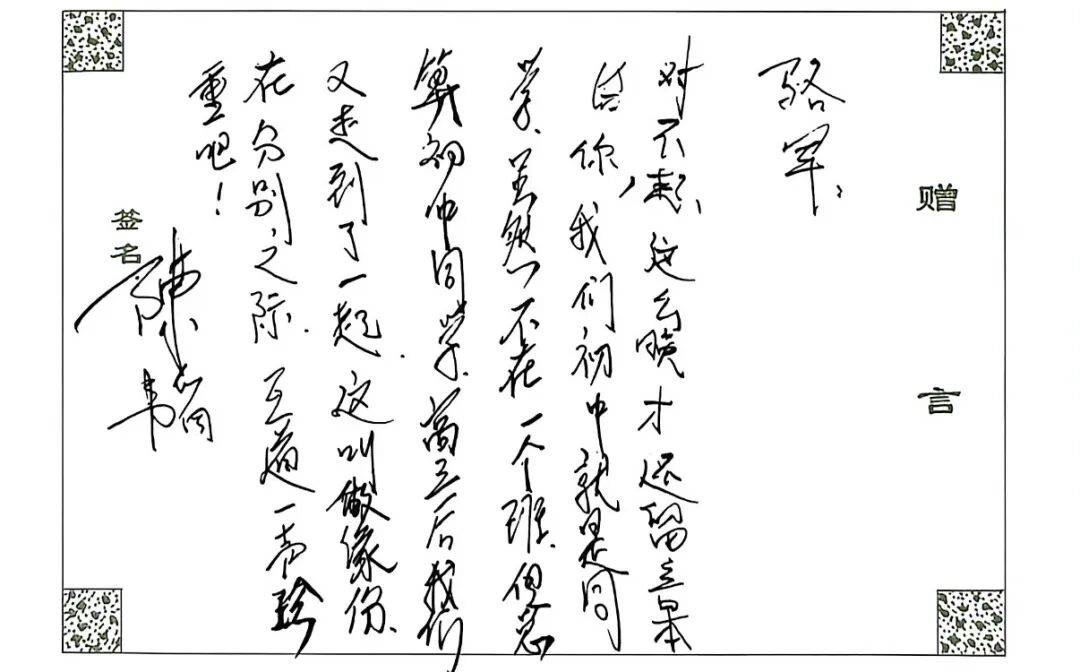 赠言
骆军：
对不起，这么晚才还留言本
给你，我们初中就是同
学，虽然不在一个班，但总
算初中同学，高三后我们
又走到了一起，这叫做缘份，
在分别之际，互道一声珍
重吧！
签名
陈